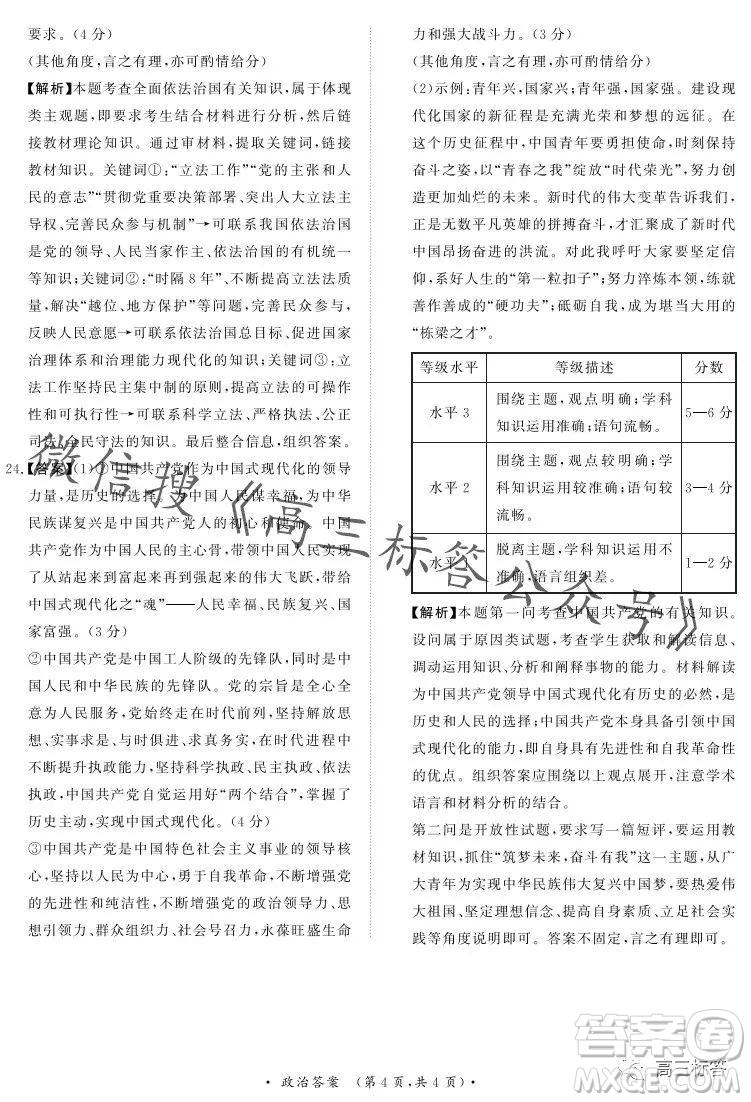 要求。(4 分)
(其他角度,言之有理,亦可酌情给分)
【解析】本题考查全面依法治国有关知识,属于体现
类主观题,即要求考生结合材料进行分析,然后链
接教材理论知识。通过审材料,提取关键词,链接
教材知识。关键词①:“立法工作”“党的主张和人
民的意志”“贯彻党重要决策部署、发挥人大立法主
导权、完善民众参与机制”→可联系我国依法治国
是党的领导、人民当家作主、依法治国的有机统一
等知识;关键词②:“时隔 8 年”、不断提高立法法质
量,解决“越位、地方保护”等问题,完善民众参与,
反映人民意愿→可联系依法治国总目标、促进国家
治理体系和治理能力现代化的知识;关键词③:立
法工作坚持民主集中制的原则,提高立法的可操作
性和可执行性→可联系科学立法、严格执法、公正
司法、全民守法的知识。最后整合信息,组织答案。
24.【答案】(1)①中国共产党作为中国式现代化的领导
力量,是历史的选择。为中国人民谋幸福,为中华
民族谋复兴是中国共产党人的初心和使命。中国
共产党作为中国人民的主心骨,带领中国人民实现
了从站起来到富起来到强起来的伟大飞跃,带给
中国式现代化之“魂”——人民幸福、民族复兴、国
家富强。(3 分)
②中国共产党是中国工人阶级的先锋队,同时是中
国人民和中华民族的先锋队。党的宗旨是全心全
意为人民服务,党始终走在时代前列,坚持解放思
想、实事求是、与时俱进、求真务实,在执政过程中
不断提升执政能力,坚持科学执政、民主执政、依法
执政,中国共产党自觉运用好“两个结合”,掌握了
历史主动,实现中国式现代化。(4 分)
③中国共产党是中国特色社会主义事业的领导核
心,坚持以人民为中心,勇于自我革命,不断增强党
的先进性和纯洁性,不断增强党的政治领导力、思
想引领力、群众组织力、社会号召力,永葆旺盛生命
力和强大战斗力。(3 分)
(其他角度,言之有理,亦可酌情给分)
(2)示例:青年兴,国家兴;青年强,国家强。建设现
代化国家的新征程是充满光荣和梦想的远征。在
这个历史征程中,中国青年要勇担使命,时刻保持
奋斗之姿,以“青春之我”绽放“时代荣光”,努力创造
更加灿烂的未来。新时代的伟大变革告诉我们,
正是无数平凡英雄的拼搏奋斗,才汇聚成了新时代
中国昂扬奋进的洪流。对此我呼吁大家要坚定信
仰,系好人生的“第一粒扣子”;努力淬炼本领,练就
善作善成的“硬功夫”;砥砺自身,成为堪当大用的
“栋梁之才”。
等级水平 等级描述 分数
水平 3 围绕主题,观点明确;学科知识运用准确;语句流畅。 5—6 分
水平 2 围绕主题,观点较明确;学科知识运用较准确;语句较流畅。 3—4 分
水平 1 脱离主题,学科知识运用不准确,语言组织差。 1—2 分
【解析】本题第一问考查中国共产党的有关知识。
设问属于原因类试题,考查学生获取和解读信息、
调动运用知识、分析和阐释事物的能力。材料解读
为中国共产党领导中国式现代化有历史的必然,是
历史和人民的选择;中国共产党本身具备引领中国
式现代化的能力,即自身具有先进性和自我革命性
的优点。组织答案应围绕以上观点展开,注意学术
语言和材料分析的结合。
第二问是开放性试题,要求写一篇短评,要运用教
材知识,抓住“筑梦未来,奋斗有我”这一主题,从广
大青年要坚定实现中华民族伟大复兴中国梦,要热爱
伟大祖国、坚定理想信念、提高自身素质、立足社会实
践等角度说明即可。答案不固定,言之有理即可。
微信搜《高三标答公众号》
答案圈
高三标答
· 政治答案 (第 4 页,共 4 页) ·